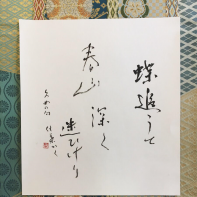 蝶追うて
春山深く
迷ひけり